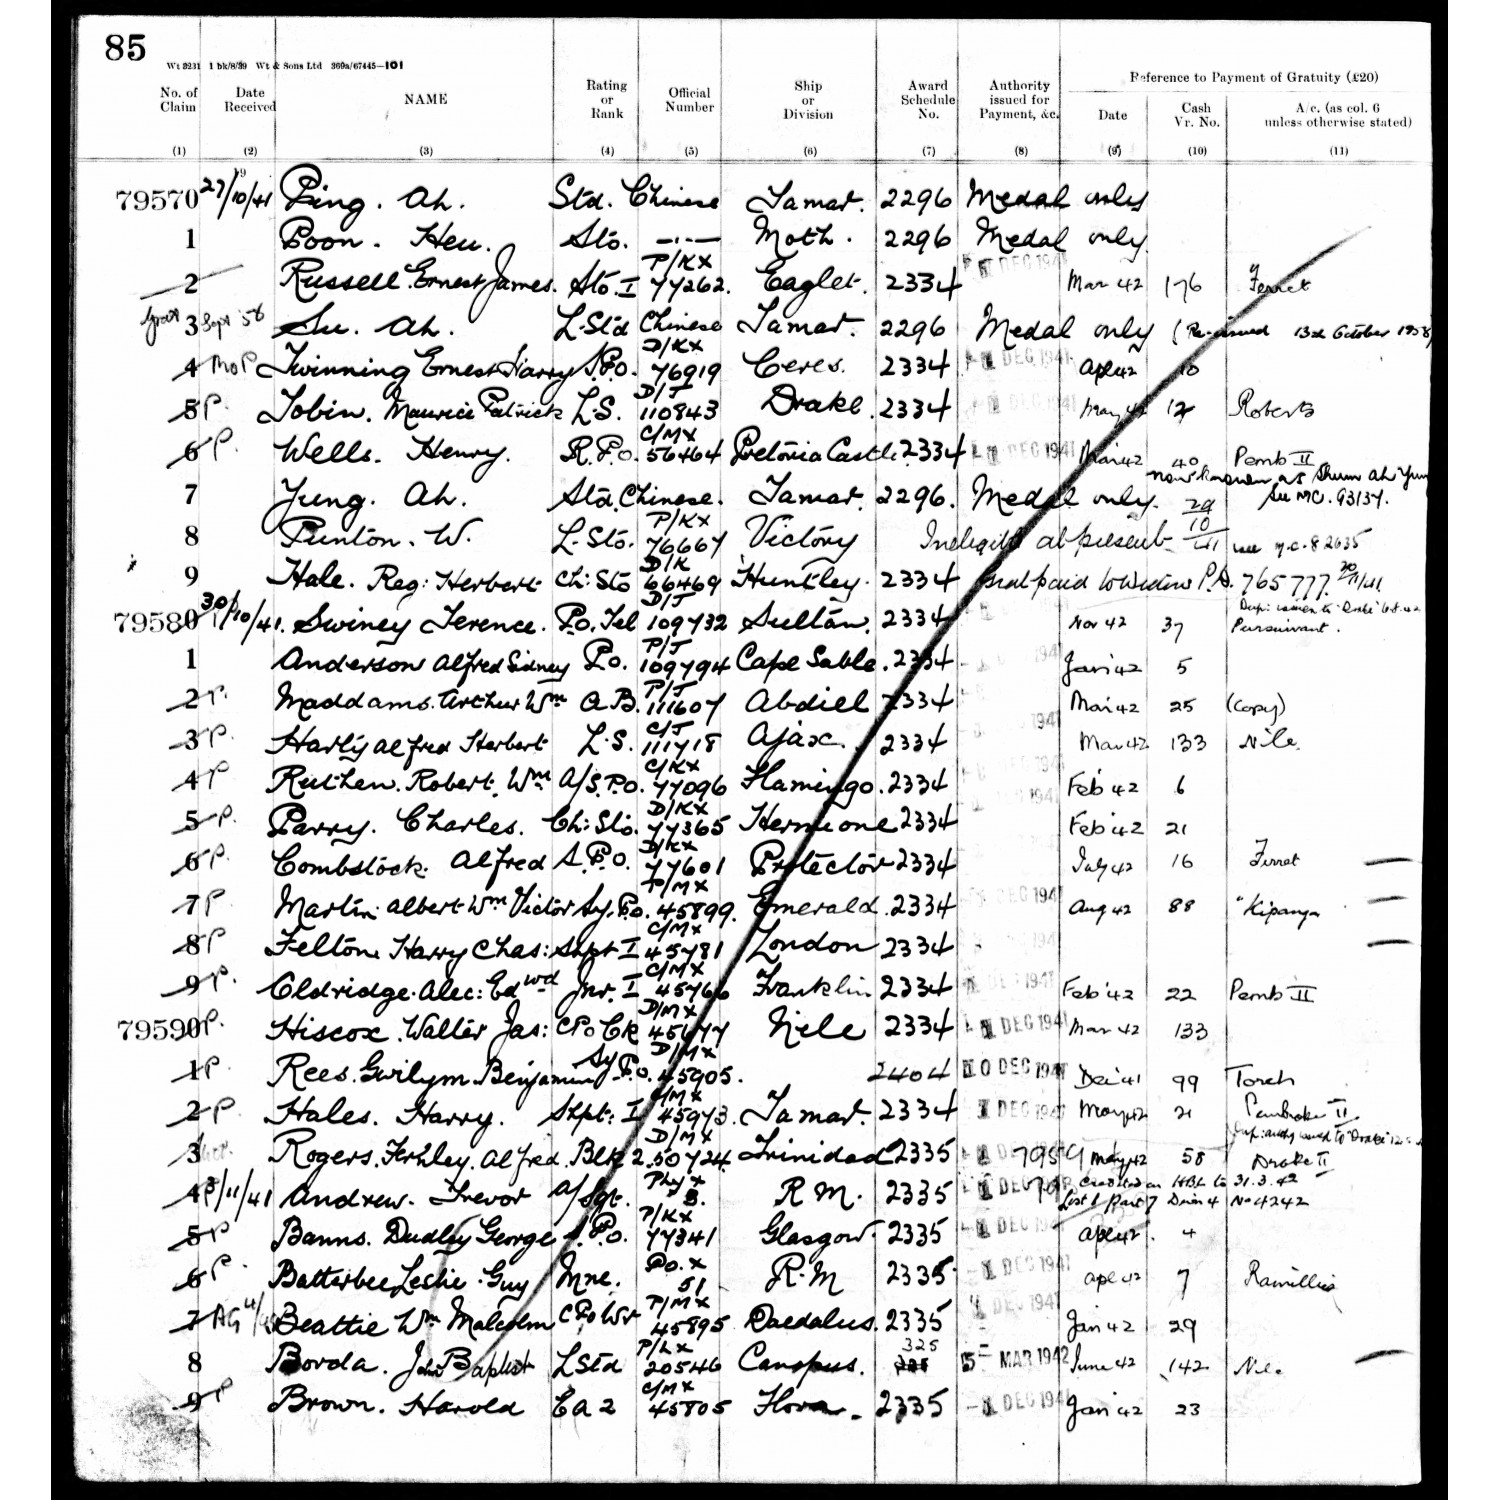 85
Wt 3231 1 bk/8/39 Wt & Sons Ltd 369a/67445—101
Reference to Payment of Gratuity (£20)
No. of Claim Date Received NAME Rating or Rank Official Number Ship or Division Award Schedule No. Authority issued for Payment, &c. Date Cash Vr. No. A/c. (as col. 6 unless otherwise stated)
(1) (2) (3) (4) (5) (6) (7) (8) (9) (10) (11)
79570 27/10/41 Ping. Ah. Std. Chinese Tamar. 2296 Medal only
1 Poon. Heu. Sto. —·— Moth. 2296 Medal only.
2 Russell. Ernest James. Sto. I P/KX 77262. Eaglet. 2334 DEC 1941 Mar 42 176 Ferret
3 Sept 58 Su. Ah. L. Std Chinese Tamar. 2296 Medal only (Re-issued 13th October 1958)
4 Twinning Ernest Harry S.P.O. D/KX 76919 Ceres. 2334 DEC 1941 Apl 42 10
5 P. Tobin. Maurice Patrick L.S. D/J 110843 Drake. 2334 DEC 1941 May 42 12 Roberts
6 P. Wells. Henry. R.P.O. C/MX 56464 Pretoria Castle. 2334 DEC 1941 Mar 42 40 Pemb II
7 Jung. Ah. Std. Chinese. Tamar. 2296. Medal only. now known as Shum Ah Yun see MC. 93137.
8 Punton. W. L. Sto. P/KX 76667 Victory Ineligible at present 29/10/41 see M.C. 82635
9 Hale. Reg: Herbert Ch: Sto D/K 66469 Huntley. 2334 Grat paid to Widow P.O. 765777.
79580 30/10/41. Swiney Terence. P.O. Tel D/J 109732 Sultan. 2334 Nov 42 37 Pursuivant.
1 Anderson Alfred Sidney P.O. P/J 109794 Cape Sable. 2334 1941 Jan 42 5
2 P. Maddams. Arthur Wm A.B. P/J 111607 Abdiel 2334 Mar 42 25 (copy)
3 P. Harly Alfred Herbert L.S. C/J 111718 Ajax. 2334 DEC 1941 Mar 42 133 Nile.
4 P Ruthen. Robert. Wm A/S.P.O. C/KX 77096 Flamingo. 2334 DEC 1941 Feb 42 6
5 P. Parry. Charles. Ch: Sto. D/KX 77365 Hermione 2334 Feb 42 21
6 P. Combstock. Alfred S.P.O. D/KX 77601 Protector 2334 July 42 16 Ferret
7 P. Martin Albert Wm Victor Sy. P.O. P/MX 45899. Emerald. 2334 DEC 1941 Aug 42 88 "Kipanga
8 P Felton. Harry Chas: Shpt I C/MX 45781 London 2334 DEC 1941
9 P. Eldridge. Alec: Edwd Jnr. I C/MX 45766 Franklin 2334 DEC 1941 Feb 42 22 Pemb II
79590 P. Hiscox. Walter Jas: C.P.O. Ck D/MX 45677 Nile 2334 1 DEC 1941 Mar 42 133
1 P. Rees. Gwilym. Benjamin Sy P.O. D/MX 45905. 2404 10 DEC 1941 Dec 41 99 Torch
2 P. Hales. Harry. Shpt: I C/MX 45973. Tamar. 2334 1 DEC 1941 May 42 21 Pembroke II
3 Rogers. Ferhley. Alfred. Blk 2. D/MX 50724 Trinidad 2335 DEC 1941 May 42 58 Drake II
4 3/11/41 Andrew. Trevor A/Sgt. Ply X 3. R.M. 2335 1 DEC Credited on HBL to 31.3.42 List 1 Part 7 Drain 4 No 4242
5 P Banns. Dudley George S.P.O. P/KX 77341 Glasgow. 2335 1 DEC 1941 Apl 42. 4
6 P. Batterbee Leslie. Guy Mne. Po. X 51 R.M 2335 1 DEC 1941 Apl 42 7 Ramillies
7 Beattie Wm Malcolm C.P.O. Wr P/MX 45895 Daedalus. 2335 DEC 1941 Jan 42 29
8 Borda. John Baptist L Std P/LX 20546 Canopus. 325 15 MAR 1942 June 42 142 Nile
9 P Brown. Harold E A 2 C/MX 45805 Flora. 2335 1 DEC 1941 Jan 42 23